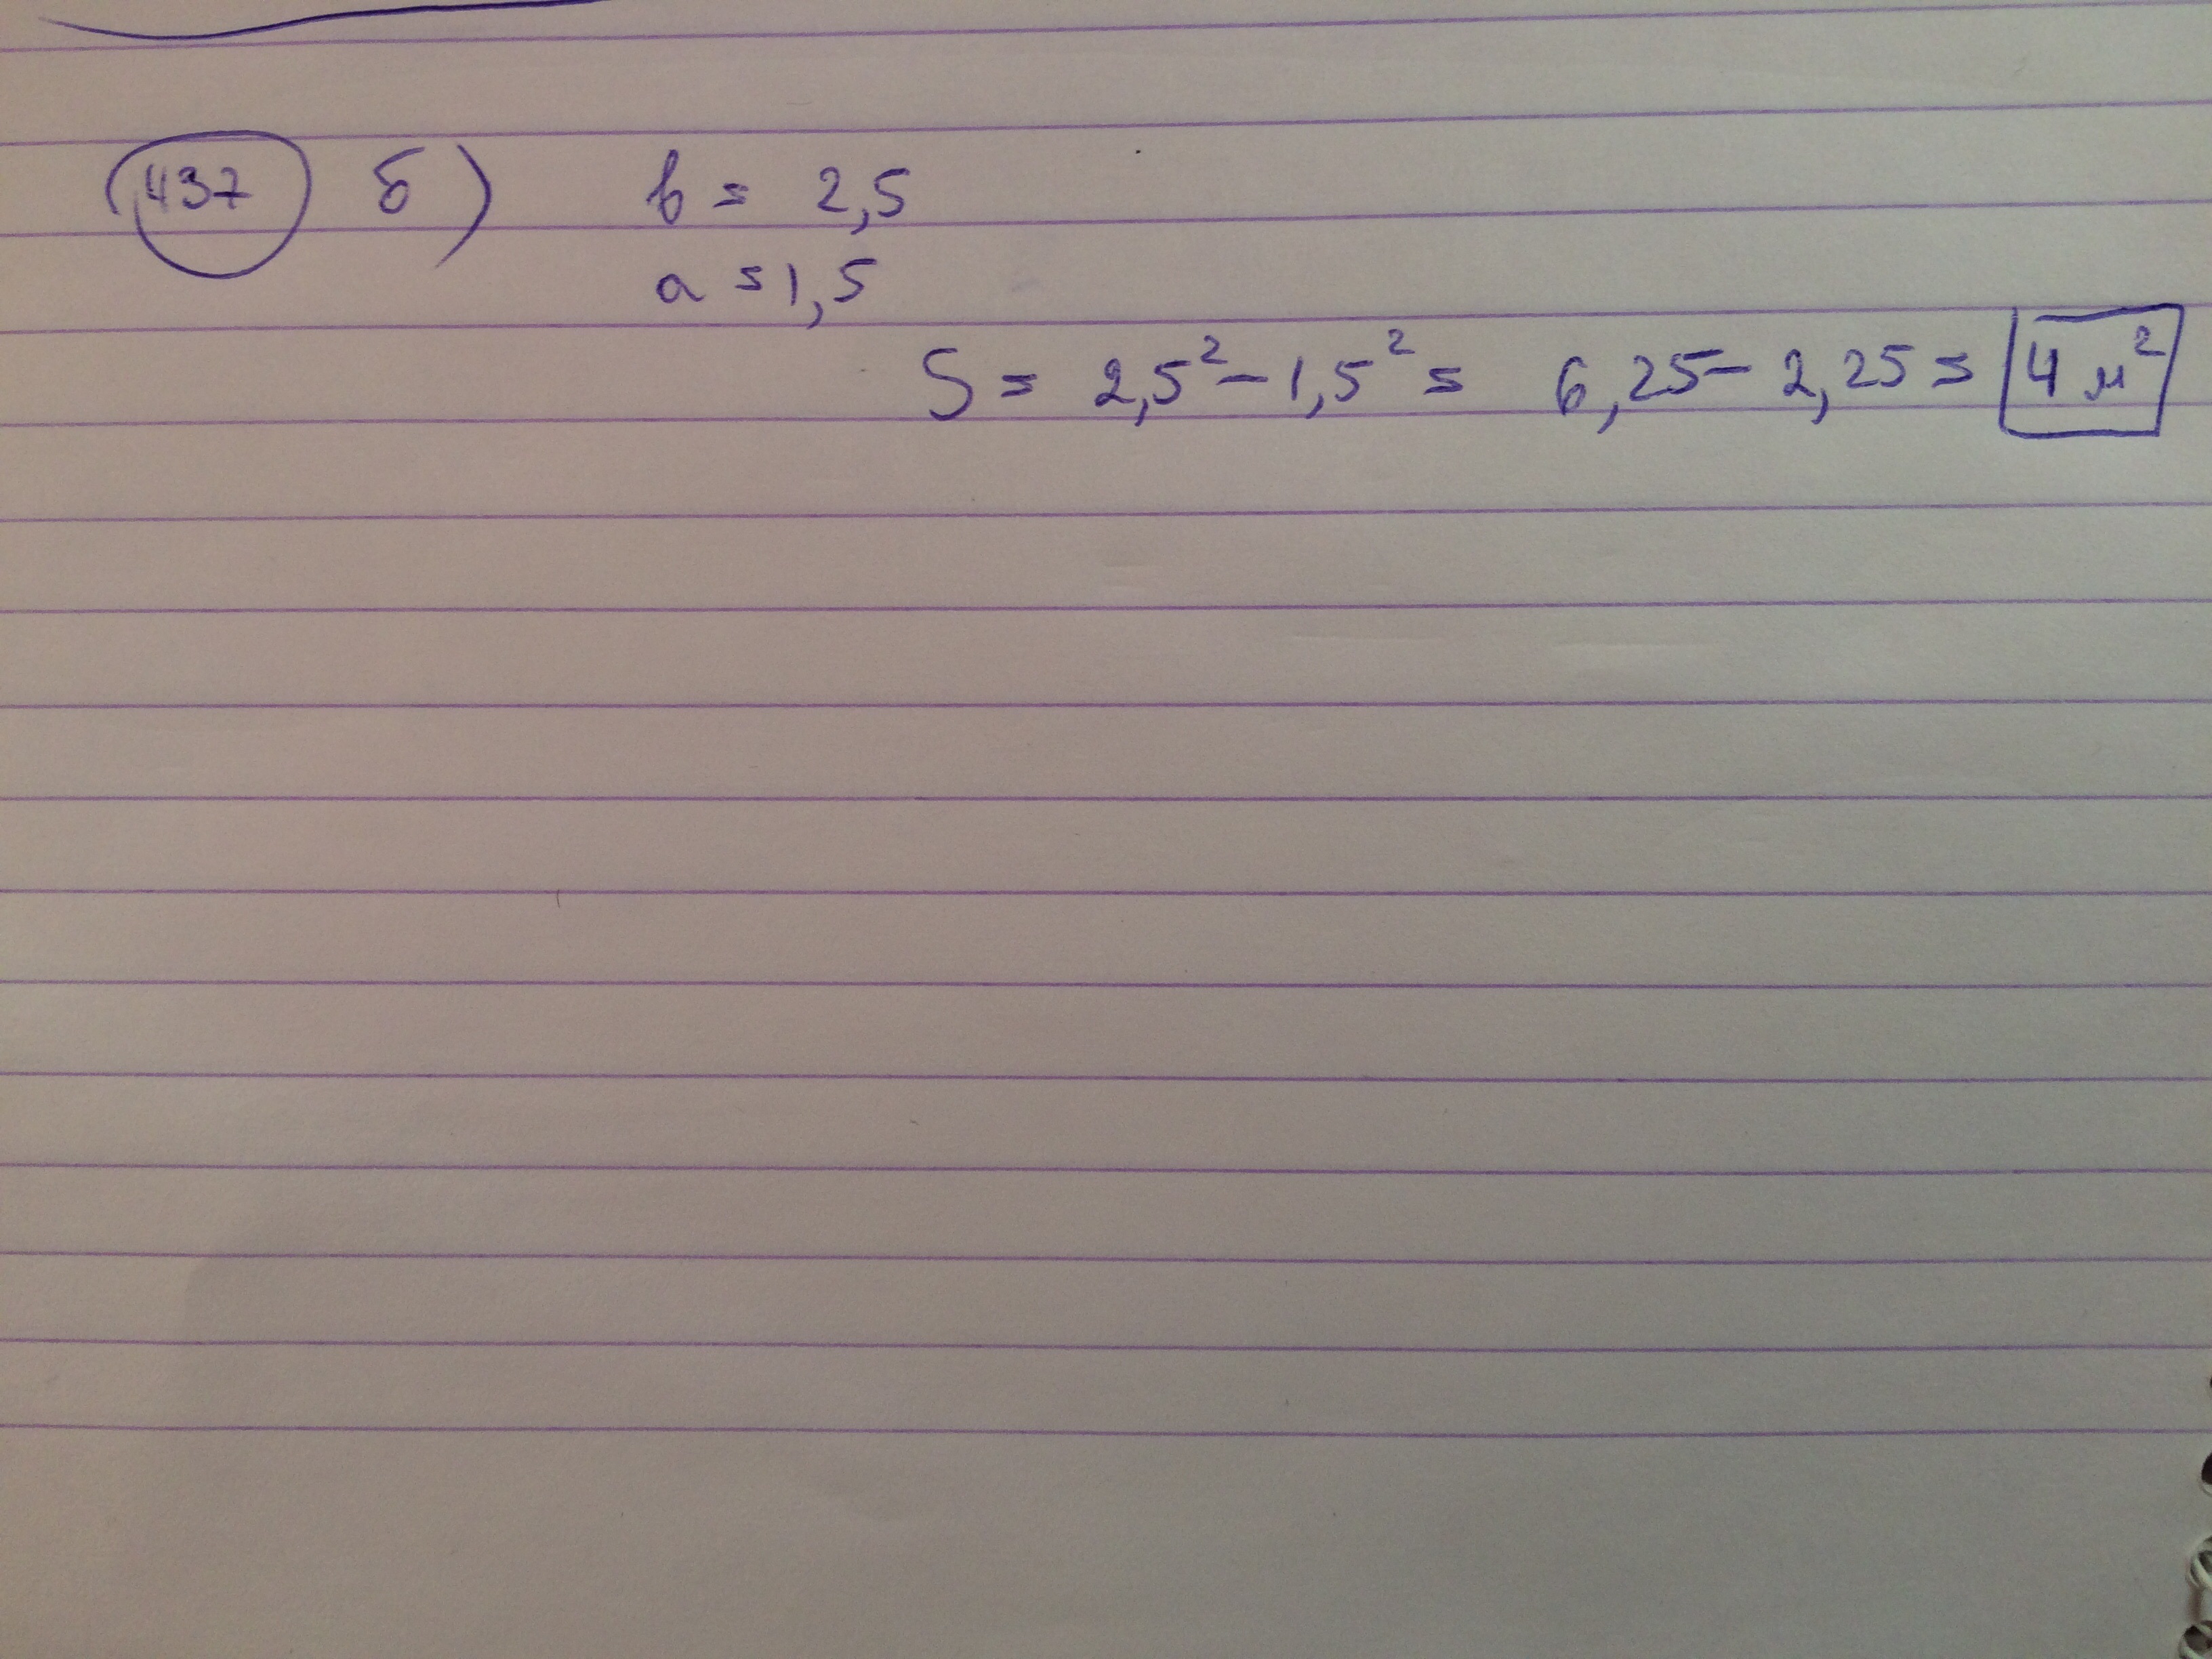 437 б) b = 2,5
a = 1,5
S = 2,5² - 1,5² = 6,25 - 2,25 = 4 м²